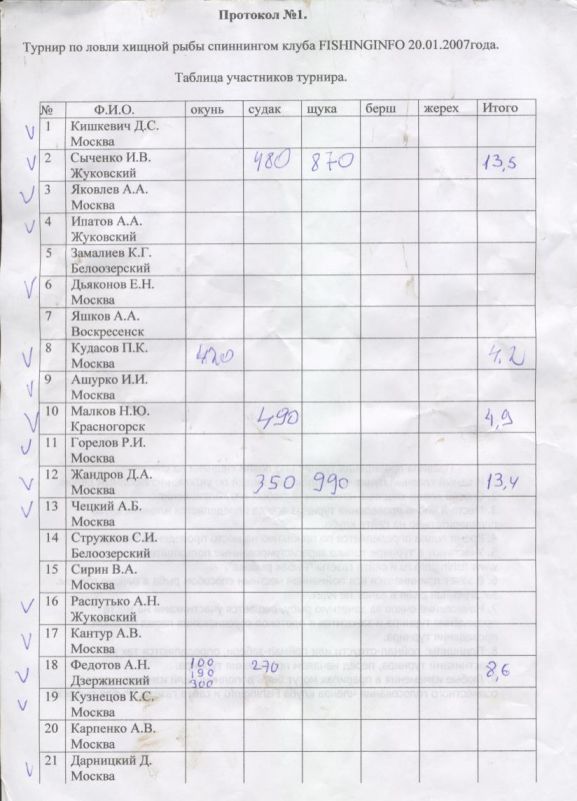 Протокол №1.
Турнир по ловли хищной рыбы спиннингом клуба FISHINGINFO 20.01.2007года.
Таблица участников турнира.
№ Ф.И.О. окунь судак щука берш жерех Итого
1 Кишкевич Д.С.
Москва
2 Сыченко И.В. 480 870 13,5
Жуковский
3 Яковлев А.А.
Москва
4 Ипатов А.А.
Жуковский
5 Замалиев К.Г.
Белоозерский
6 Дьяконов Е.Н.
Москва
7 Яшков А.А.
Воскресенск
8 Кудасов П.К. 420 4.2
Москва
9 Ашурко И.И.
Москва
10 Малков Н.Ю. 490 4,9
Красногорск
11 Горелов Р.И.
Москва
12 Жандров Д.А. 350 990 13,4
Москва
13 Чецкий А.Б.
Москва
14 Стружков С.И.
Белоозерский
15 Сирин В.А.
Москва
16 Распутько А.Н.
Жуковский
17 Кантур А.В.
Москва
18 Федотов А.Н. 100 270 8,6
Дзержинский 190
300
19 Кузнецов К.С.
Москва
20 Карпенко А.В.
Москва
21 Дарницкий Д.
Москва